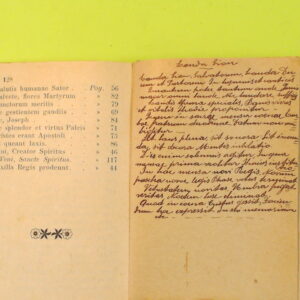 128
alutis humanae Sator . . Pag. 56
flores Martyrum . » 82
nctorum meritis . . » 79
gaudiis . » 69
, Joseph . . . » 84
splendor et virtus Patris » 74
erant Apostoli . » 71
queant laxis . . . »
i, Creator Spiritus . »
Veni, Sancte Spiritus . » 117
xilla Regis prodeunt . » 44
Lauda Sion
Lauda Sion, Salvatorem, Lauda Du
cem et Pastorem In hymnis et canticis
Quantum potes tantum aude Quia
major omni laude, Nec laudare sufficis
Laudis thema specialis, Panis vivus
et vitalis Hodie proponitur
Quem in sacrae mensa coenae, Tur
bae fratrum duodenae Datum non am
bigitur
Sit laus plena sit sonora, Sit jucun
da, sit decora Mentis jubilatio
Dies enim solemnis agitur, In qua
mensae prima recolitur Hujus institutio
In hac mensa novi Regis, Novum
pascha novae legis Phase vetus terminat
Vetustatem novitas Umbram fugat
veritas Noctem lux eliminat
Quod in coena Christus gessit, Facien
dum hoc expressit In sui memoriam
etc